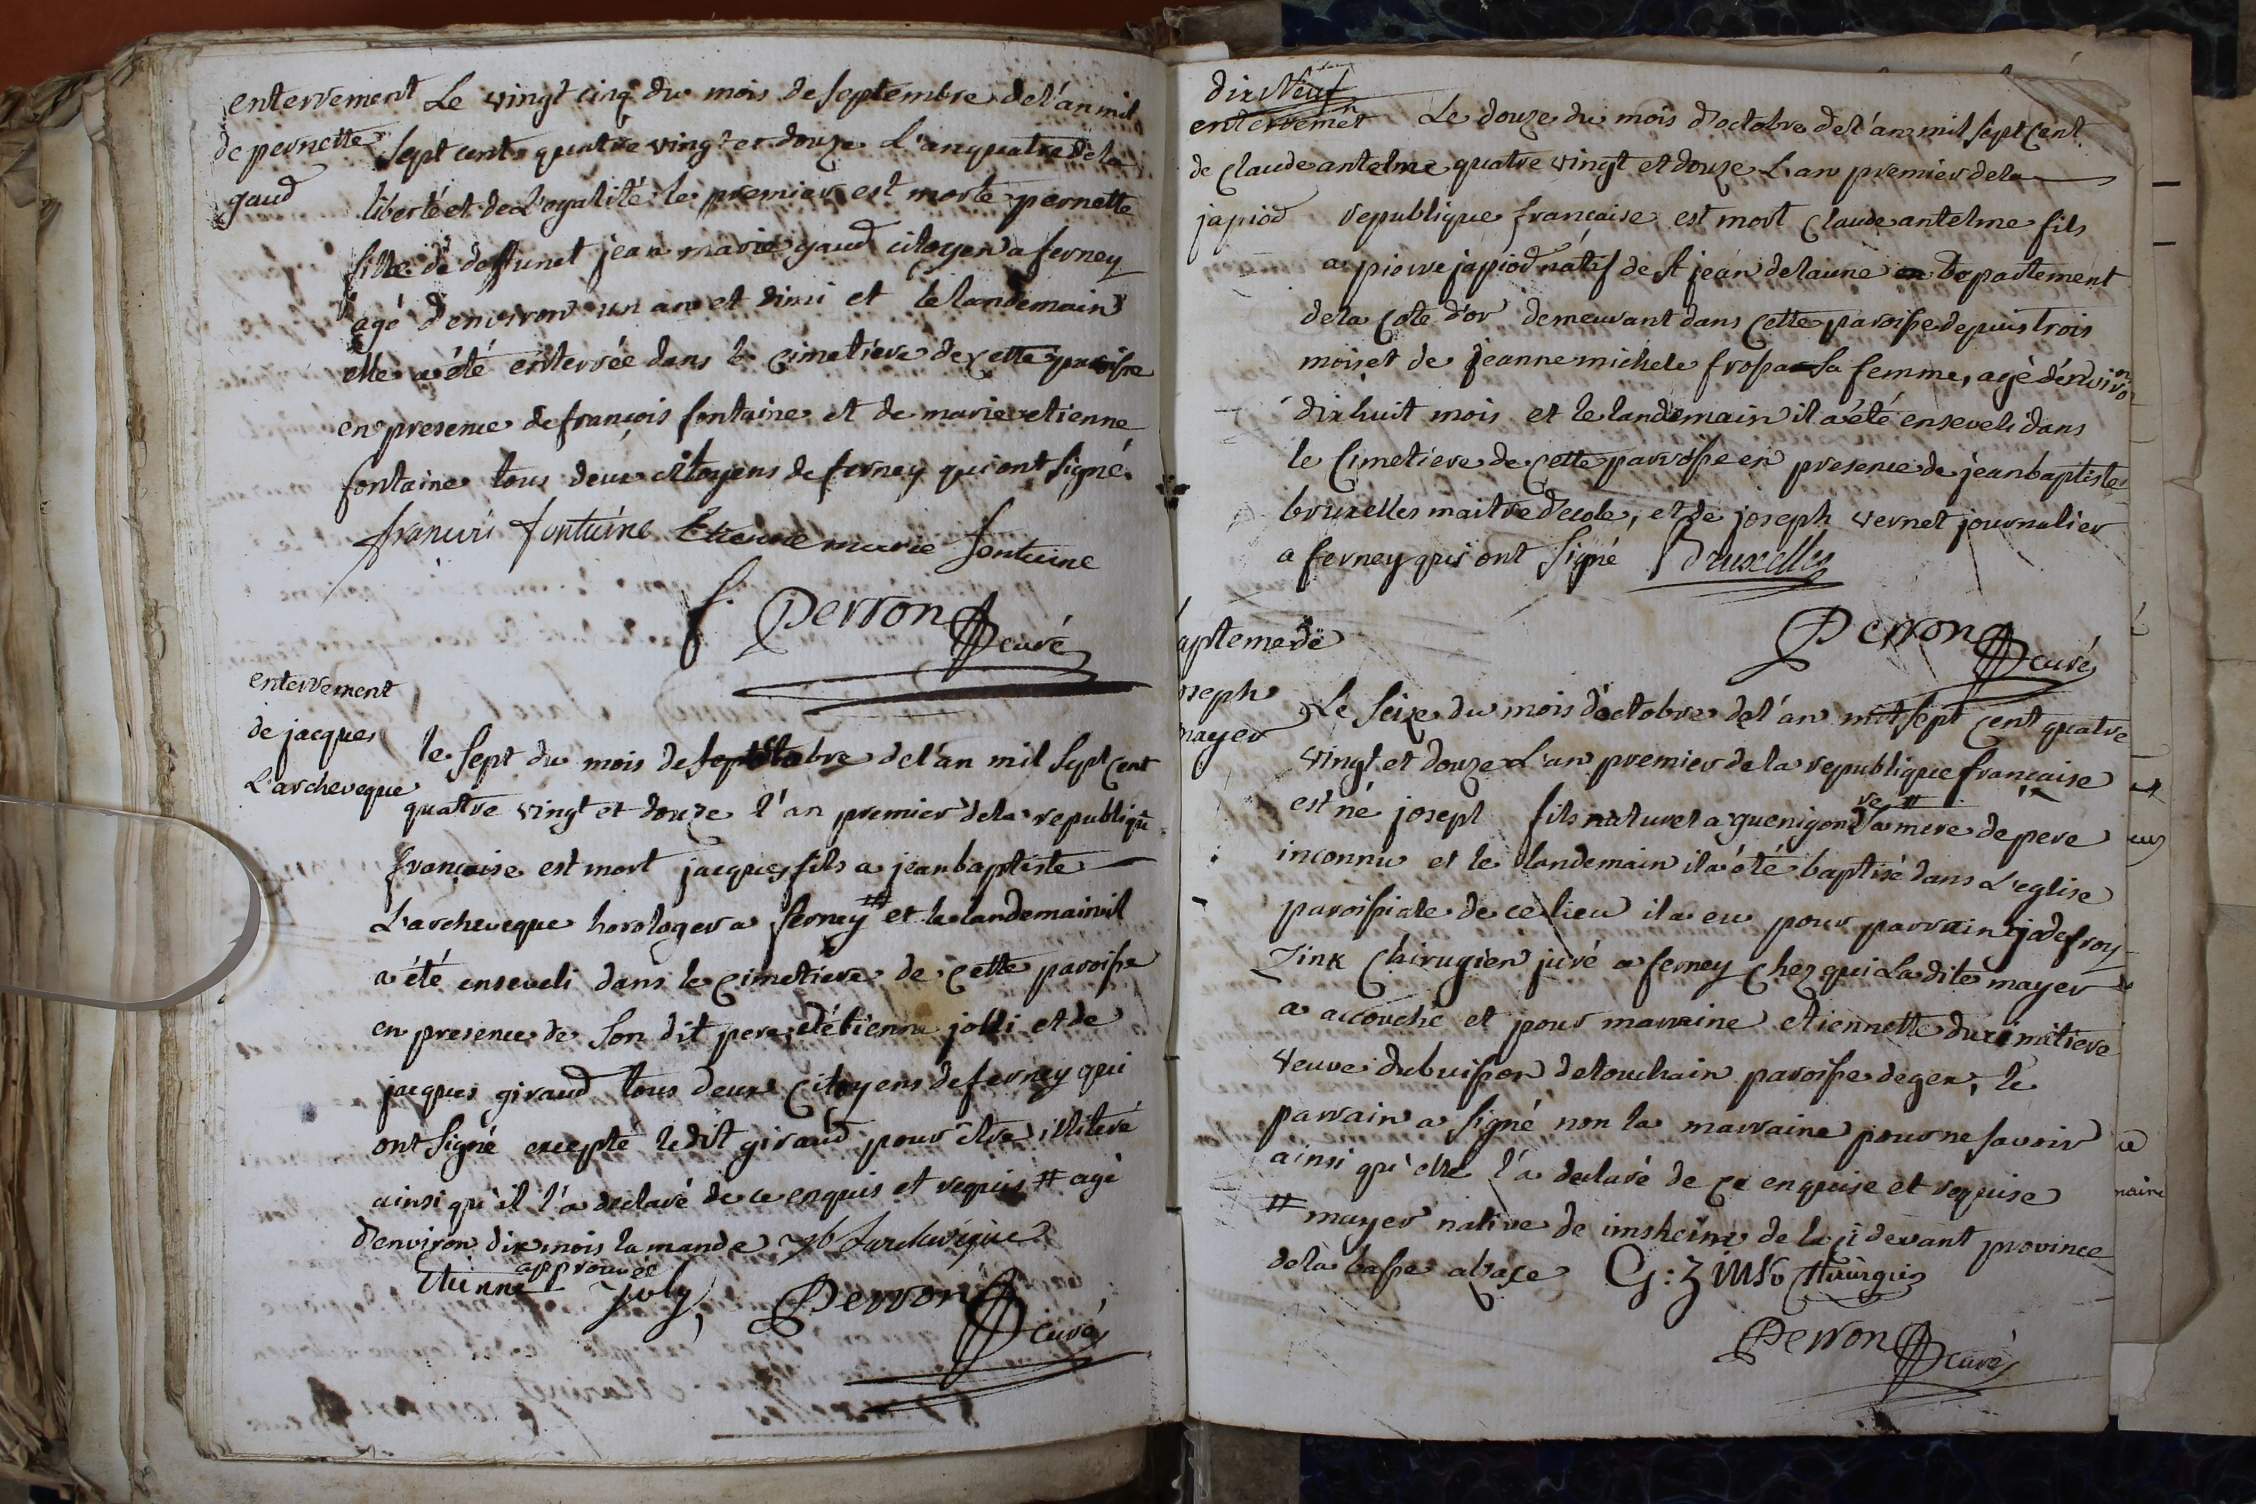 entervement
de pernette
gaud
Le vingt cinq du mois de septembre de l'an mil
sept cents quatre vingt et douze L'an quatre de la
liberté et de L'egalité le premier est morte pernette
fille de deffunct jean marie gaud citoyen a ferney
agé d'environ un an et dimi et le landemain
elle a été enterrée dans le cimetiere de cette paroisse
en presence de françois fontaine et de marie etienne
fontaine tous deux citoyens de ferney qui ont signé.
francois fontaine Etienne marie fontaine
f. Perron curé
enterrement
de jacques
L'archeveque
le sept du mois de octobre de l'an mil sept cent
quatre vingt et douze l'an premier de la republiq̃
française est mort jacques fils a jean baptiste
L'archeveque horologer a ferney # et le landemain il
a été enseveli dans le cimetiere de cette paroisse
en presence de son dit pere, d'étienne jolli et de
jacques giraud tous deux citoyens de ferney qui
ont signé excepté le dit giraud pour être illiteré
ainsi qu'il l'a declaré de ce enquis et requis # agé
d'environ dix mois la mande jb Larcheveque
approuvée
Etienne joly Perron curé
dix Neuf
enterremẽt
de Claude antelme
japiod
Le douze du mois d'octobre de l'an mil sept cent
quatre vingt et douze L'an premier de la
republique française est mort Claude antelme fils
a pierre japiod natif de st jean de laune departement
de la cote d'or demeurant dans cette paroisse depuis trois
mois et de jeanne michele frosa sa femme, agé d'environ
dix huit mois et le landemain il a été enseveli dans
le Cimetiere de cette parroisse en presence de jean baptiste
bruxelles maitre d'ecole, et de joseph vernet journalier
a ferney qui ont signé Bruxelles
Perron curé
apteme de
oseph
mayer
Le seize du mois d'octobre de l'an mil sept cent quatre
vingt et douze L'an premier de la republique française
est né joseph fils naturel a quenigonde # sa mere de pere
inconnu et le landemain il a été baptisé dans L'eglise
paroissiale de ce lieu il a eu pour parrain jodefroy
Zink Chirugien juré a ferney chez qui La dite mayer
a accouché et pour marraine etiennette du cimitiere
veuve dubuisson de touchain paroisse de gex, le
parrain a signé non la marraine pour ne savoir
ainsi qu'elle l'a declaré de ce enquise et requise
# mayer native de imsheim de la ci devant province
de la basse alsace G: Zink Chirurgien
Perron curé